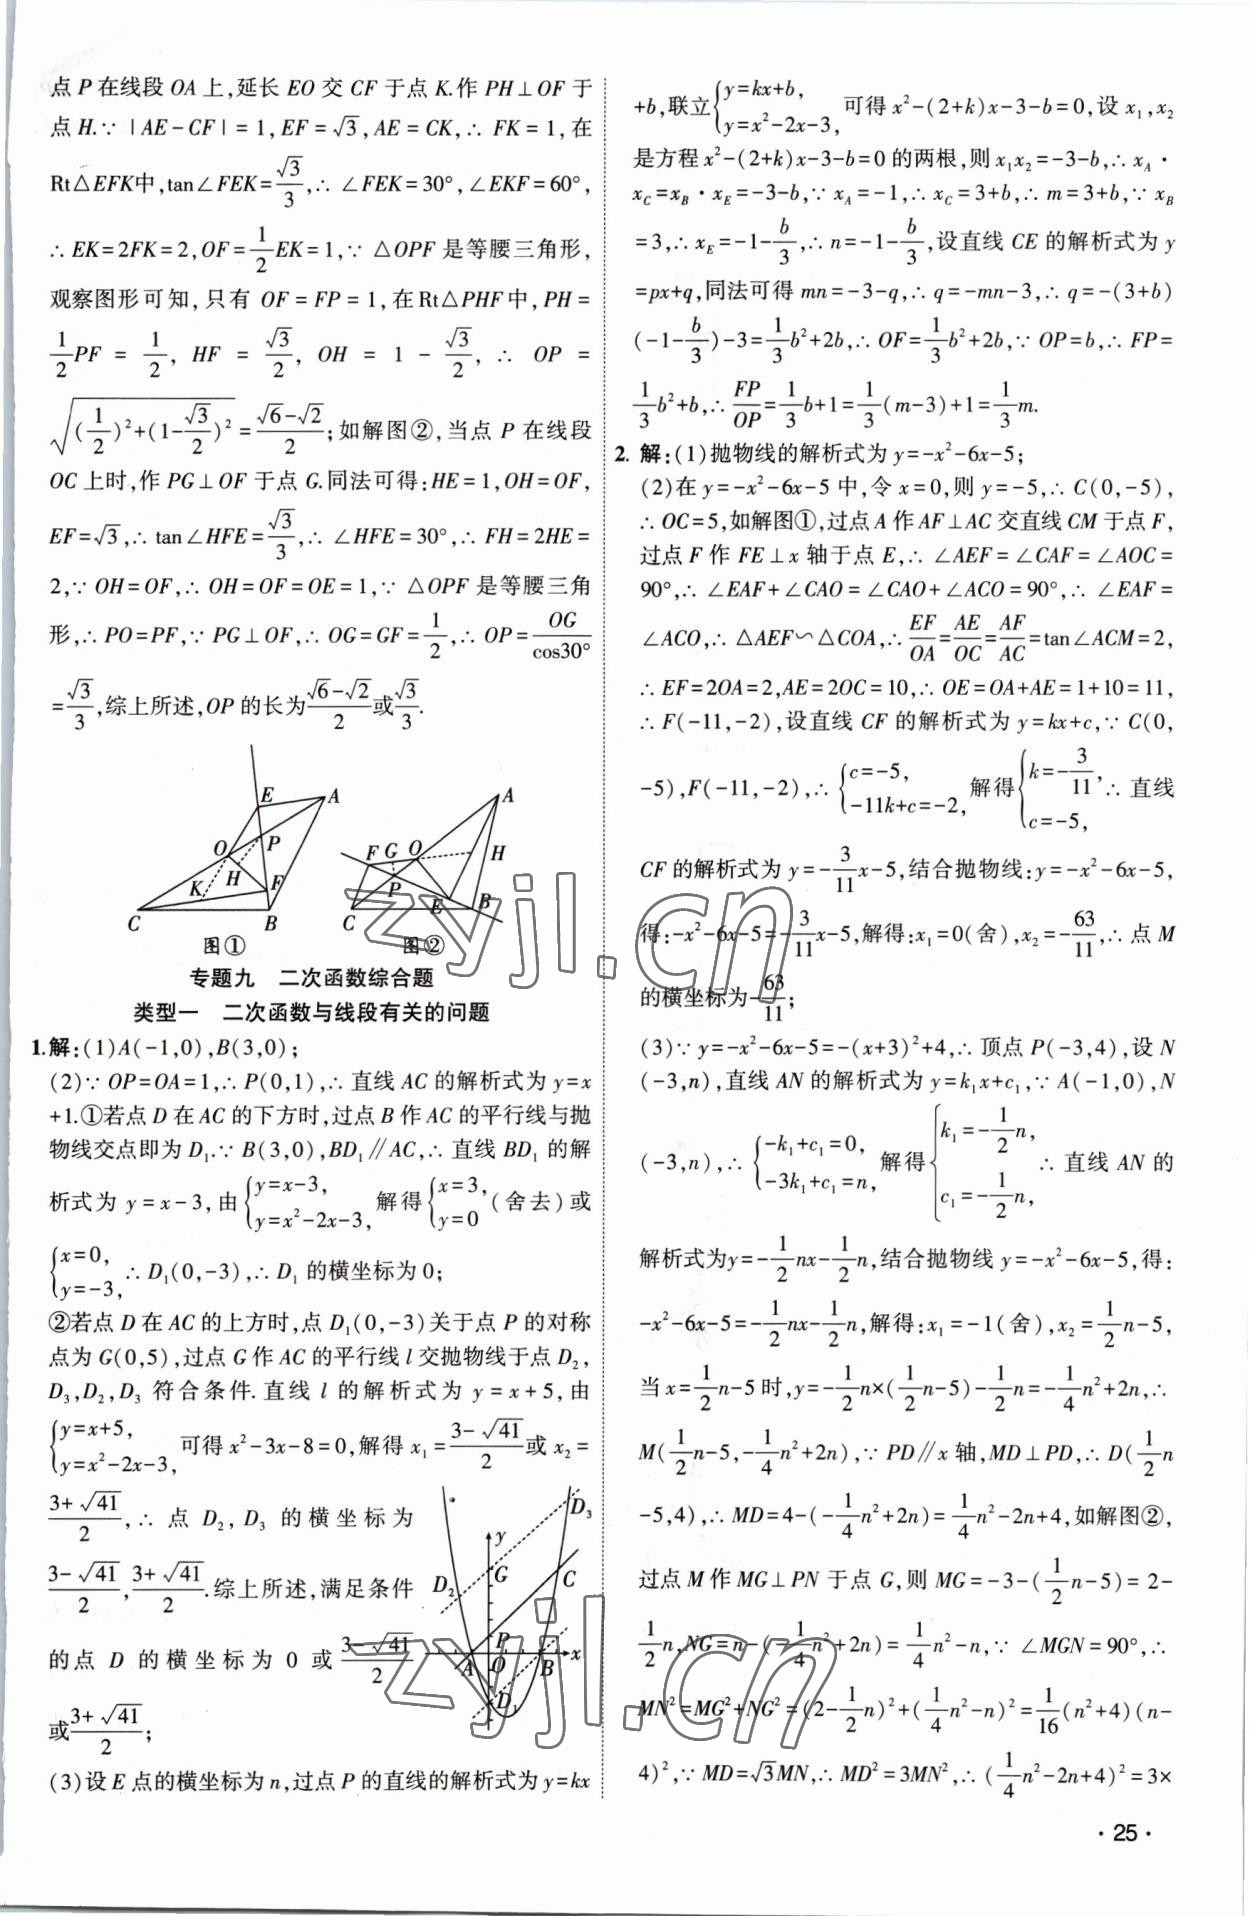 点 P 在线段 OA 上,延长 EO 交 CF 于点 K.作 PH⊥OF 于
点 H.∵ |AE-CF|=1,EF=√3,AE=CK,∴ FK=1,在
Rt△EFK中,tan∠FEK=√3/3,∴ ∠FEK=30°,∠EKF=60°,
∴ EK=2FK=2,OF=1/2EK=1,∵ △OPF 是等腰三角形,
观察图形可知,只有 OF=FP=1,在Rt△PHF中,PH=
1/2PF = 1/2, HF = √3/2, OH = 1 - √3/2, ∴ OP =
√((1/2)²+(1-√3/2)²)=(√6-√2)/2;如解图②,当点 P 在线段
OC 上时,作 PG⊥OF 于点 G.同法可得:HE=1,OH=OF,
EF=√3,∴ tan∠HFE=√3/3,∴ ∠HFE=30°,∴ FH=2HE=
2,∵ OH=OF,∴ OH=OF=OE=1,∵ △OPF 是等腰三角
形,∴ PO=PF,∵ PG⊥OF,∴ OG=GF=1/2,∴ OP=OG/cos30°
=√3/3,综上所述,OP 的长为(√6-√2)/2或√3/3.
E A O P H K F C B
图①
A F G O H P C E B
图②
专题九 二次函数综合题
类型一 二次函数与线段有关的问题
1.解:(1)A(-1,0),B(3,0);
(2)∵ OP=OA=1,∴ P(0,1),∴ 直线 AC 的解析式为 y=x
+1.①若点 D 在 AC 的下方时,过点 B 作 AC 的平行线与抛
物线交点即为 D₁.∵ B(3,0),BD₁∥AC,∴ 直线 BD₁ 的解
析式为 y=x-3,由{y=x-3, y=x²-2x-3, 解得{x=3, y=0 (舍去)或
{x=0, y=-3, ∴ D₁(0,-3),∴ D₁ 的横坐标为 0;
②若点 D 在 AC 的上方时,点 D₁(0,-3)关于点 P 的对称
点为 G(0,5),过点 G 作 AC 的平行线 l 交抛物线于点 D₂,
D₃,D₂,D₃ 符合条件.直线 l 的解析式为 y=x+5,由
{y=x+5, y=x²-2x-3, 可得 x²-3x-8=0,解得 x₁=(3-√41)/2或 x₂=
(3+√41)/2,∴ 点 D₂, D₃ 的横坐标为
(3-√41)/2,(3+√41)/2.综上所述,满足条件
的点 D 的横坐标为 0 或(3-√41)/2
或(3+√41)/2;
D₃ y G C D₂ P A O B x D₁
(3)设 E 点的横坐标为 n,过点 P 的直线的解析式为 y=kx
+b,联立{y=kx+b, y=x²-2x-3, 可得 x²-(2+k)x-3-b=0,设 x₁,x₂
是方程 x²-(2+k)x-3-b=0 的两根,则 x₁x₂=-3-b,∴ x_A·
x_C=x_B·x_E=-3-b,∵ x_A=-1,∴ x_C=3+b,∴ m=3+b,∵ x_B
=3,∴ x_E=-1-b/3,∴ n=-1-b/3,设直线 CE 的解析式为 y
=px+q,同法可得 mn=-3-q,∴ q=-mn-3,∴ q=-(3+b)
(-1-b/3)-3=1/3b²+2b,∴ OF=1/3b²+2b,∵ OP=b,∴ FP=
1/3b²+b,∴ FP/OP=1/3b+1=1/3(m-3)+1=1/3m.
2. 解:(1)抛物线的解析式为 y=-x²-6x-5;
(2)在 y=-x²-6x-5 中,令 x=0,则 y=-5,∴ C(0,-5),
∴ OC=5,如解图①,过点 A 作 AF⊥AC 交直线 CM 于点 F,
过点 F 作 FE⊥x 轴于点 E,∴ ∠AEF=∠CAF=∠AOC=
90°,∴ ∠EAF+∠CAO=∠CAO+∠ACO=90°,∴ ∠EAF=
∠ACO,∴ △AEF∽△COA,∴ EF/OA=AE/OC=AF/AC=tan∠ACM=2,
∴ EF=2OA=2,AE=2OC=10,∴ OE=OA+AE=1+10=11,
∴ F(-11,-2),设直线 CF 的解析式为 y=kx+c,∵ C(0,
-5),F(-11,-2),∴ {c=-5, -11k+c=-2, 解得{k=-3/11, c=-5, ∴ 直线
CF 的解析式为 y=-3/11x-5,结合抛物线:y=-x²-6x-5,
得:-x²-6x-5=-3/11x-5,解得:x₁=0(舍),x₂=-63/11,∴ 点 M
的横坐标为-63/11;
(3)∵ y=-x²-6x-5=-(x+3)²+4,∴ 顶点 P(-3,4),设 N
(-3,n),直线 AN 的解析式为 y=k₁x+c₁,∵ A(-1,0),N
(-3,n),∴ {-k₁+c₁=0, -3k₁+c₁=n, 解得{k₁=-1/2n, c₁=-1/2n, ∴ 直线 AN 的
解析式为y=-1/2nx-1/2n,结合抛物线 y=-x²-6x-5,得:
-x²-6x-5=-1/2nx-1/2n,解得:x₁=-1(舍),x₂=1/2n-5,
当 x=1/2n-5 时,y=-1/2n×(1/2n-5)-1/2n=-1/4n²+2n,∴
M(1/2n-5,-1/4n²+2n),∵ PD∥x 轴,MD⊥PD,∴ D(1/2n
-5,4),∴ MD=4-(-1/4n²+2n)=1/4n²-2n+4,如解图②,
过点 M 作 MG⊥PN 于点 G,则 MG=-3-(1/2n-5)=2-
1/2n,NG=n-(-1/4n²+2n)=1/4n²-n,∵ ∠MGN=90°,∴
MN²=MG²+NG²=(2-1/2n)²+(1/4n²-n)²=1/16(n²+4)(n-
4)²,∵ MD=√3MN,∴ MD²=3MN²,∴ (1/4n²-2n+4)²=3×
·25·
zyjl.cn
zyjl.cn